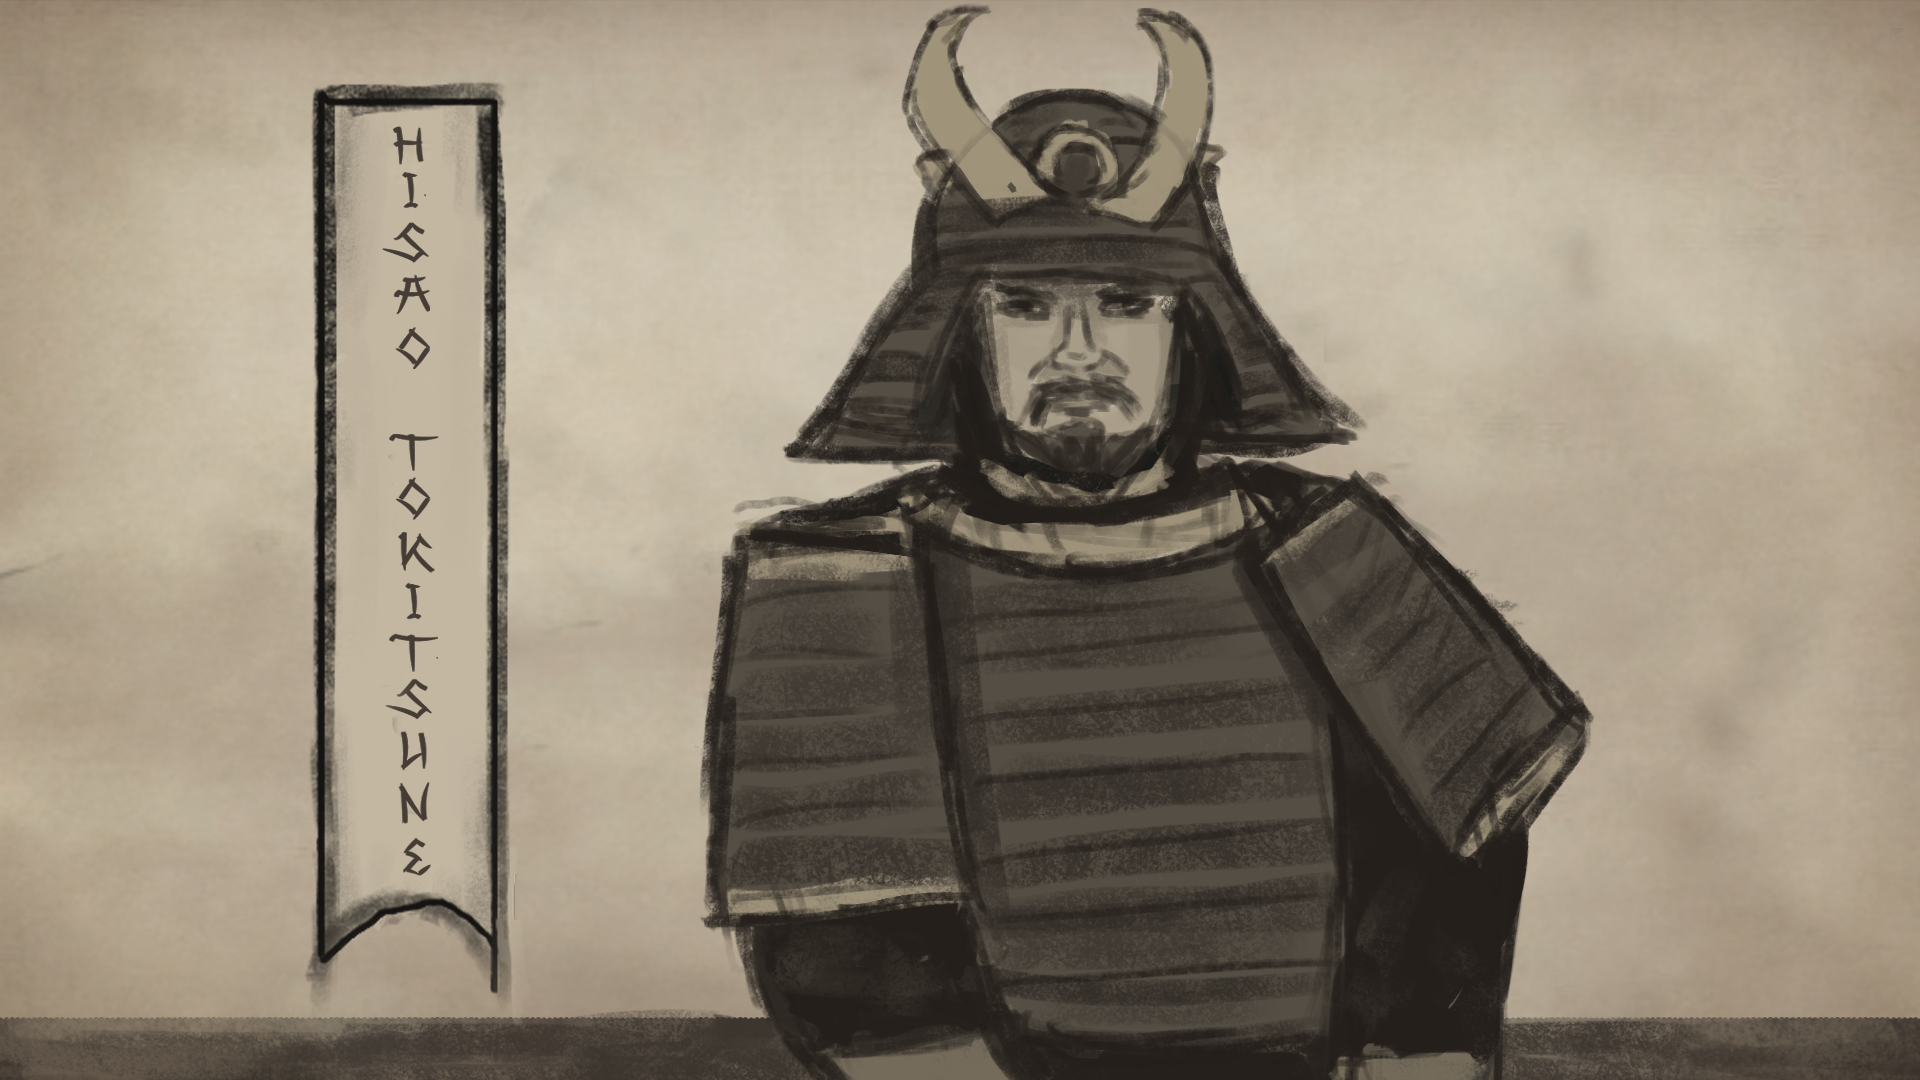 HISAO TOKITSUNE